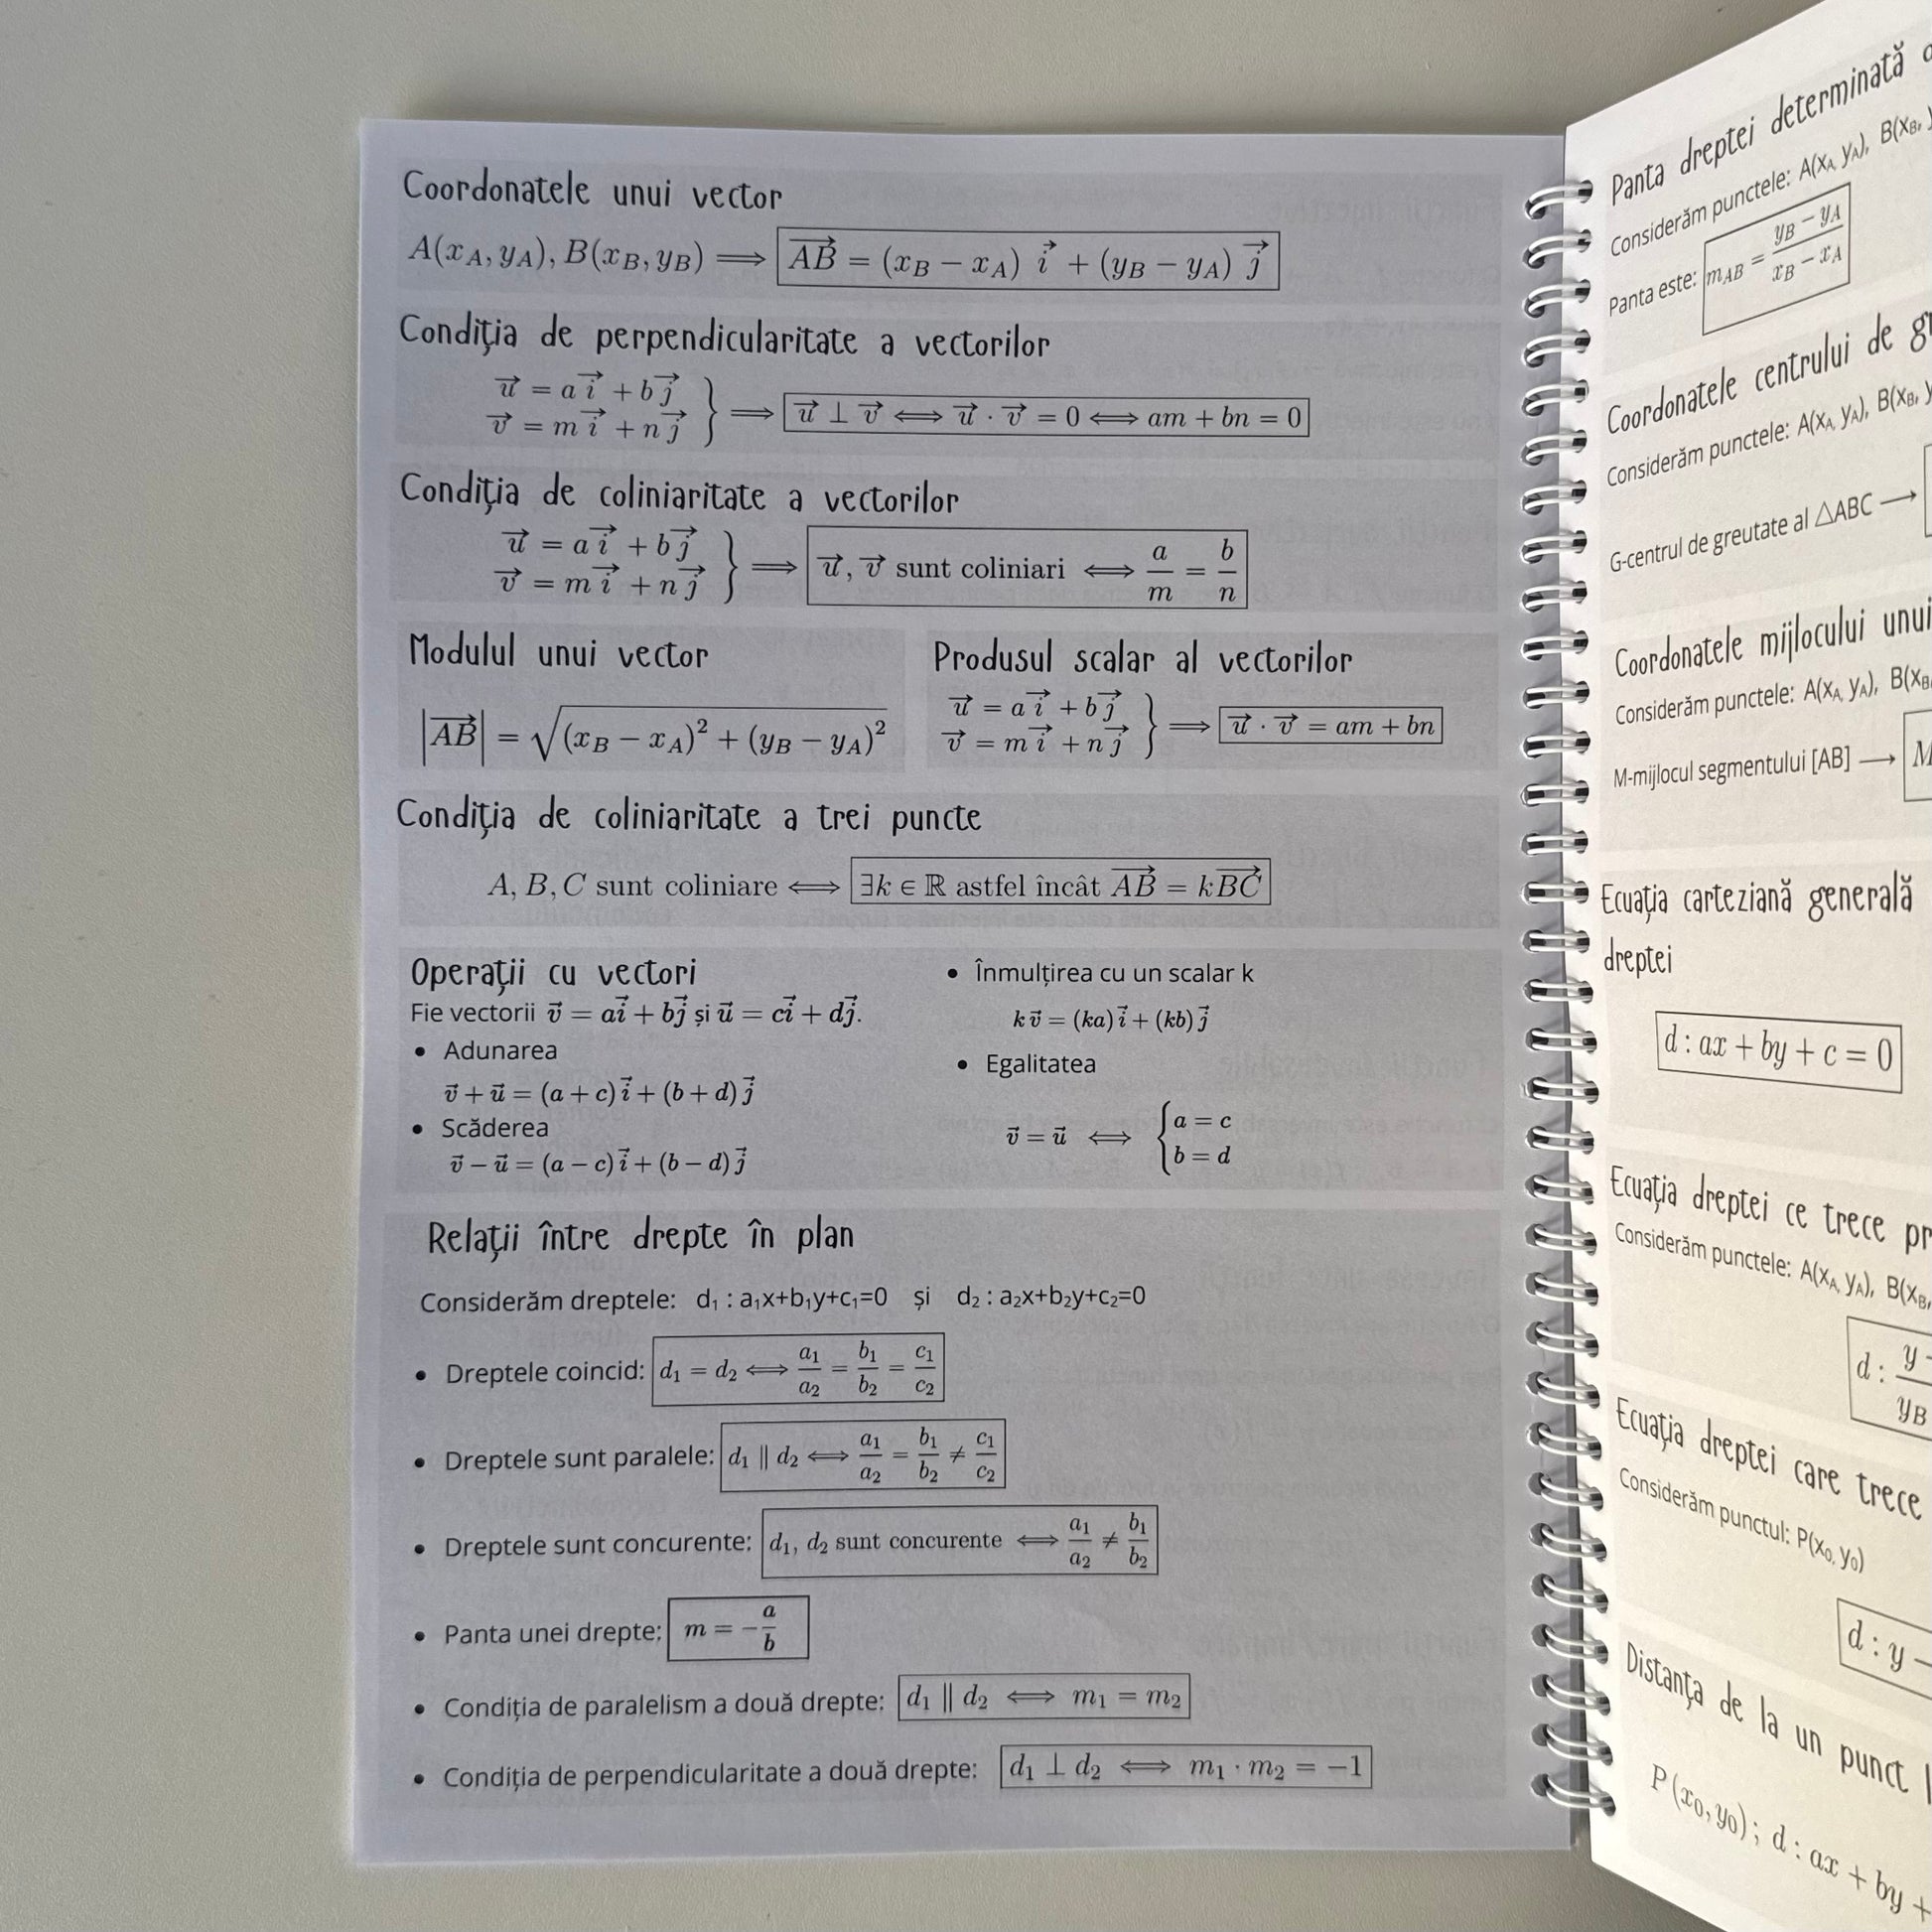 Coordonatele unui vector
A(x_A, y_A), B(x_B, y_B) ⟹ \overrightarrow{AB} = (x_B − x_A) \vec{i} + (y_B − y_A) \vec{j}
Condiția de perpendicularitate a vectorilor
\vec{u} = a\vec{i} + b\vec{j}
\vec{v} = m\vec{i} + n\vec{j} } ⟹ \vec{u} ⊥ \vec{v} ⟺ \vec{u} · \vec{v} = 0 ⟺ am + bn = 0
Condiția de coliniaritate a vectorilor
\vec{u} = a\vec{i} + b\vec{j}
\vec{v} = m\vec{i} + n\vec{j} } ⟹ \vec{u}, \vec{v} sunt coliniari ⟺ \frac{a}{m} = \frac{b}{n}
Modulul unui vector
|\overrightarrow{AB}| = \sqrt{(x_B − x_A)^2 + (y_B − y_A)^2}
Produsul scalar al vectorilor
\vec{u} = a\vec{i} + b\vec{j}
\vec{v} = m\vec{i} + n\vec{j} } ⟹ \vec{u} · \vec{v} = am + bn
Condiția de coliniaritate a trei puncte
A, B, C sunt coliniare ⟺ ∃k ∈ ℝ astfel încât \overrightarrow{AB} = k\overrightarrow{BC}
Operații cu vectori
Fie vectorii \vec{v} = a\vec{i} + b\vec{j} și \vec{u} = c\vec{i} + d\vec{j}.
• Adunarea
\vec{v} + \vec{u} = (a + c)\vec{i} + (b + d)\vec{j}
• Scăderea
\vec{v} − \vec{u} = (a − c)\vec{i} + (b − d)\vec{j}
• Înmulțirea cu un scalar k
k\vec{v} = (ka)\vec{i} + (kb)\vec{j}
• Egalitatea
\vec{v} = \vec{u} ⟺ { a = c
b = d
Relații între drepte în plan
Considerăm dreptele: d₁ : a₁x+b₁y+c₁=0 și d₂ : a₂x+b₂y+c₂=0
• Dreptele coincid: d₁ = d₂ ⟺ \frac{a_1}{a_2} = \frac{b_1}{b_2} = \frac{c_1}{c_2}
• Dreptele sunt paralele: d₁ ∥ d₂ ⟺ \frac{a_1}{a_2} = \frac{b_1}{b_2} ≠ \frac{c_1}{c_2}
• Dreptele sunt concurente: d₁, d₂ sunt concurente ⟺ \frac{a_1}{a_2} ≠ \frac{b_1}{b_2}
• Panta unei drepte: m = −\frac{a}{b}
• Condiția de paralelism a două drepte: d₁ ∥ d₂ ⟺ m₁ = m₂
• Condiția de perpendicularitate a două drepte: d₁ ⊥ d₂ ⟺ m₁ · m₂ = −1
Panta dreptei determinată
Considerăm punctele: A(x_A, y_A), B(x_B,
Panta este: m_{AB} = \frac{y_B − y_A}{x_B − x_A}
Coordonatele centrului de
Considerăm punctele: A(x_A, y_A), B(x_B,
G-centrul de greutate al △ABC ⟶
Coordonatele mijlocului unui
Considerăm punctele: A(x_A, y_A), B(x_B
M-mijlocul segmentului [AB] ⟶ M
Ecuația carteziană generală
dreptei
d : ax + by + c = 0
Ecuația dreptei ce trece pr
Considerăm punctele: A(x_A, y_A), B(x_B,
d : y −
y_B
Ecuația dreptei care trece
Considerăm punctul: P(x₀, y₀)
d : y −
Distanța de la un punct
P(x₀, y₀); d : ax + by +